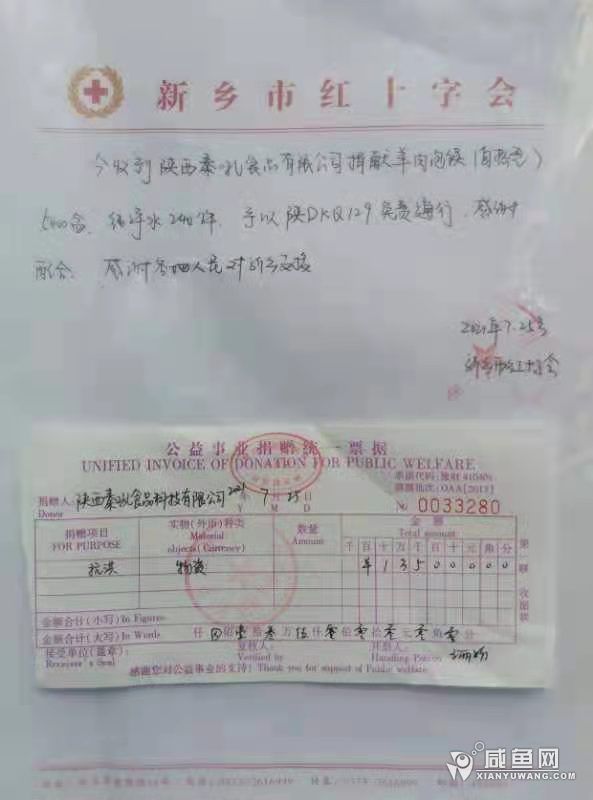 新乡市红十字会
今收到陕西秦乳食品有限公司捐献羊肉泡馍（自热
500盒、纯净水240件、予以陕DKQ129免费通行、感谢
配合、感谢 人民对 支援
2021年7.25号
新乡市红十字会
公益事业捐赠统一票据
UNIFIED INVOICE OF DONATION FOR PUBLIC WELFARE
票据代码:豫财 410401
票据批次:OAA[2013]
捐赠人:陕西秦乳食品科技有限公司 2021年 7月 25日 № 0033280
Donor Y M D
捐赠项目 实物(外币)种类 数量 金额
FOR PURPOSE Material objects(Currency) Amount Total amount
千百十万千百十元角分
抗洪 物资 ¥ 1 3 5 0 0 0 0 0
金额合计(小写) In Figures
金额合计(大写) In Words 仟 佰壹拾叁万伍仟零佰零拾零元零角零分
接受单位(盖章): 复核人: 开票人:
Receiver's Seal Verified by Handling Person
感谢您对公益事业的支持! Thank you for support of Public welfare
咸鱼网
XIANYUWANG.COM